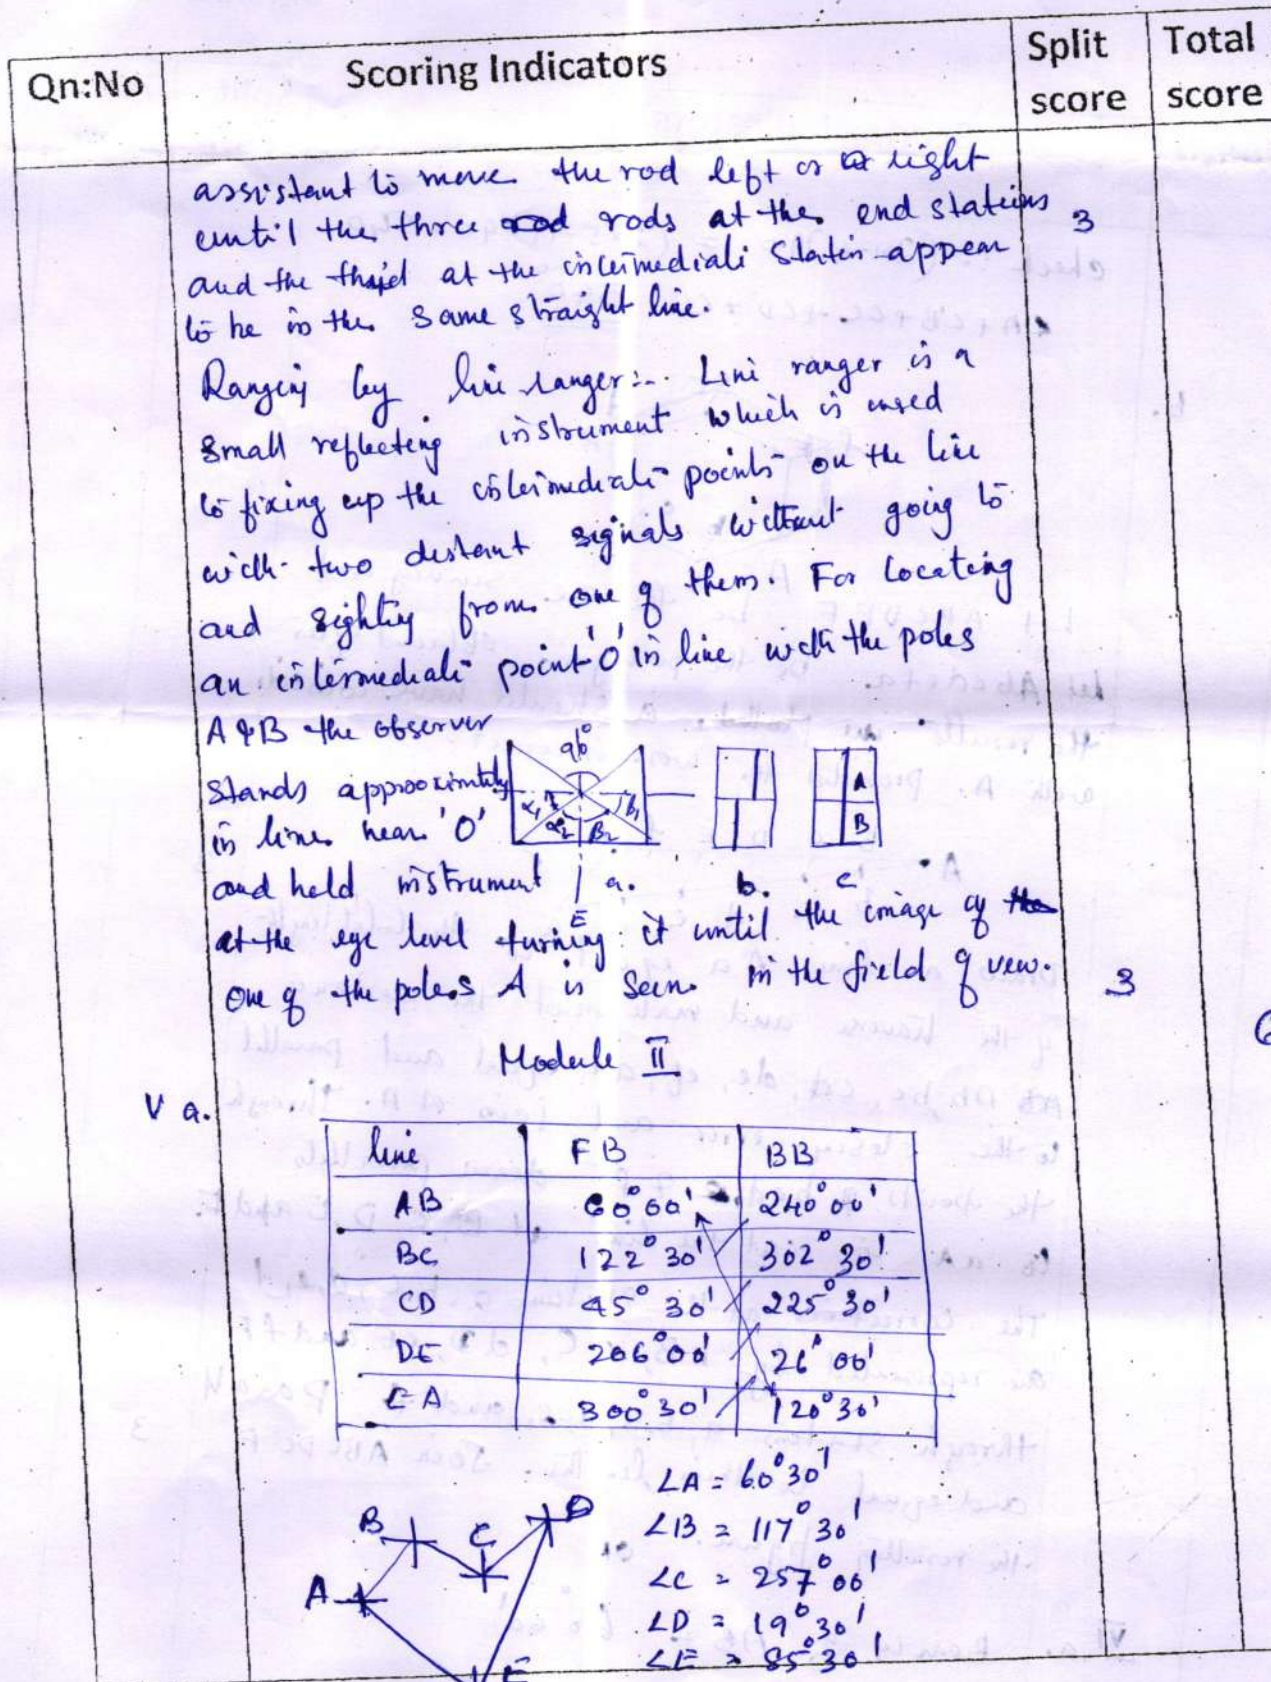 Qn:No Scoring Indicators Split score Total score
assistant to move the rod left or right
until the three rods at the end stations 3
and the third at the intermediate station appear
to be in the same straight line.
Ranging by line ranger:- Line ranger is a
small reflecting instrument which is used
to fixing up the intermediate points on the line
with two distant signals without going to
and sighting from one of them. For Locating
an intermediate point 'O' in line with the poles
A & B the observer
stands approximately
in line near 'O'
and held instrument
90°
α1 α2 β2 β1
E
a. b. c
A
B
at the eye level turning it until the image of the
one of the poles A is seen in the field of view. 3
6
Module II
V a.
line FB BB
AB 60°00' 240°00'
BC 122°30' 302°30'
CD 45°30' 225°30'
DE 206°00' 26°00'
EA 300°30' 120°30'
∠A = 60°30'
∠B = 117°30'
∠C = 257°00'
∠D = 19°30'
∠E = 85°30'
B C D
A
E